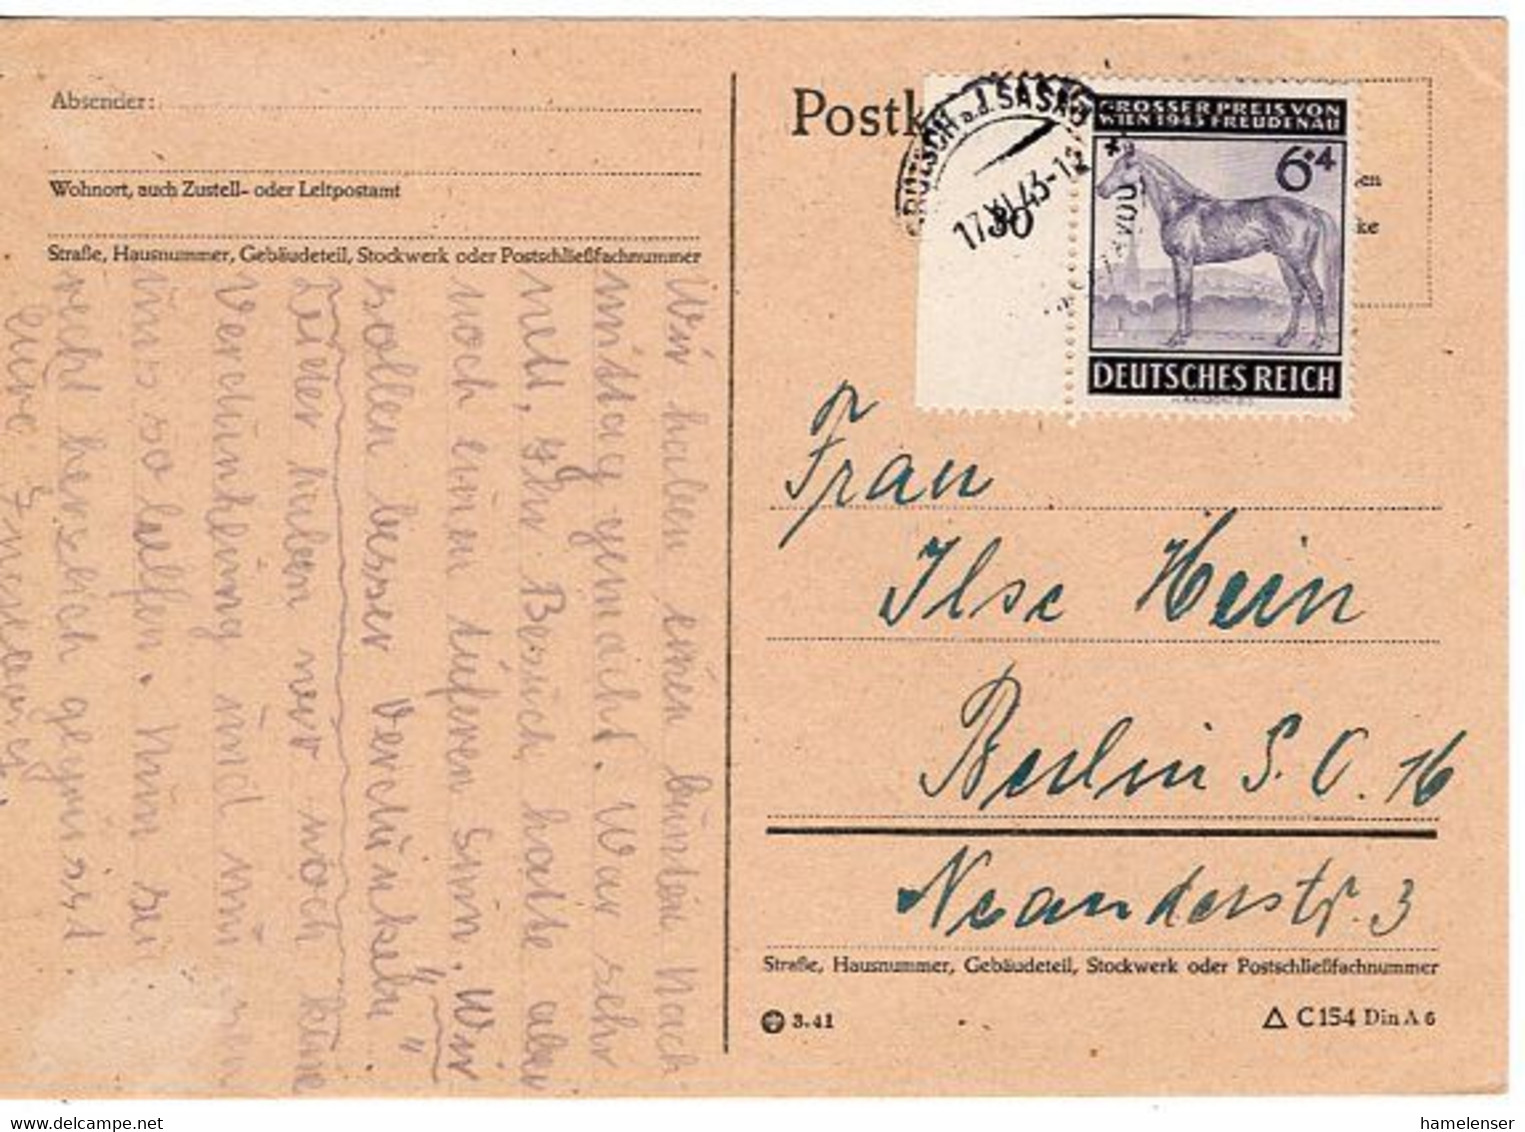 Absender:
Wohnort, auch Zustell- oder Leitpostamt
Straße, Hausnummer, Gebäudeteil, Stockwerk oder Postschließfachnummer
Wir haben einen bunten Nach-
mittag gemacht. War sehr
nett, Ihr Besuch hatte aber
noch einen tieferen Sinn. Wir
sollen besser verdunkeln
Leider haben wir noch keine
Verdunkelung und
uns so helfen. Nun sei
recht herzlich gegrüsst
Postk
a.d. SASAU
17.XI.43-12
30
GROSSER PREIS VON
WIEN 1943 FREUDENAU
6+4
DEUTSCHES REICH
en
ke
Frau
Ilse Hein
Berlin S.O. 16
Neanderstr. 3
Straße, Hausnummer, Gebäudeteil, Stockwerk oder Postschließfachnummer
3.41
C 154 Din A 6
hamelenser